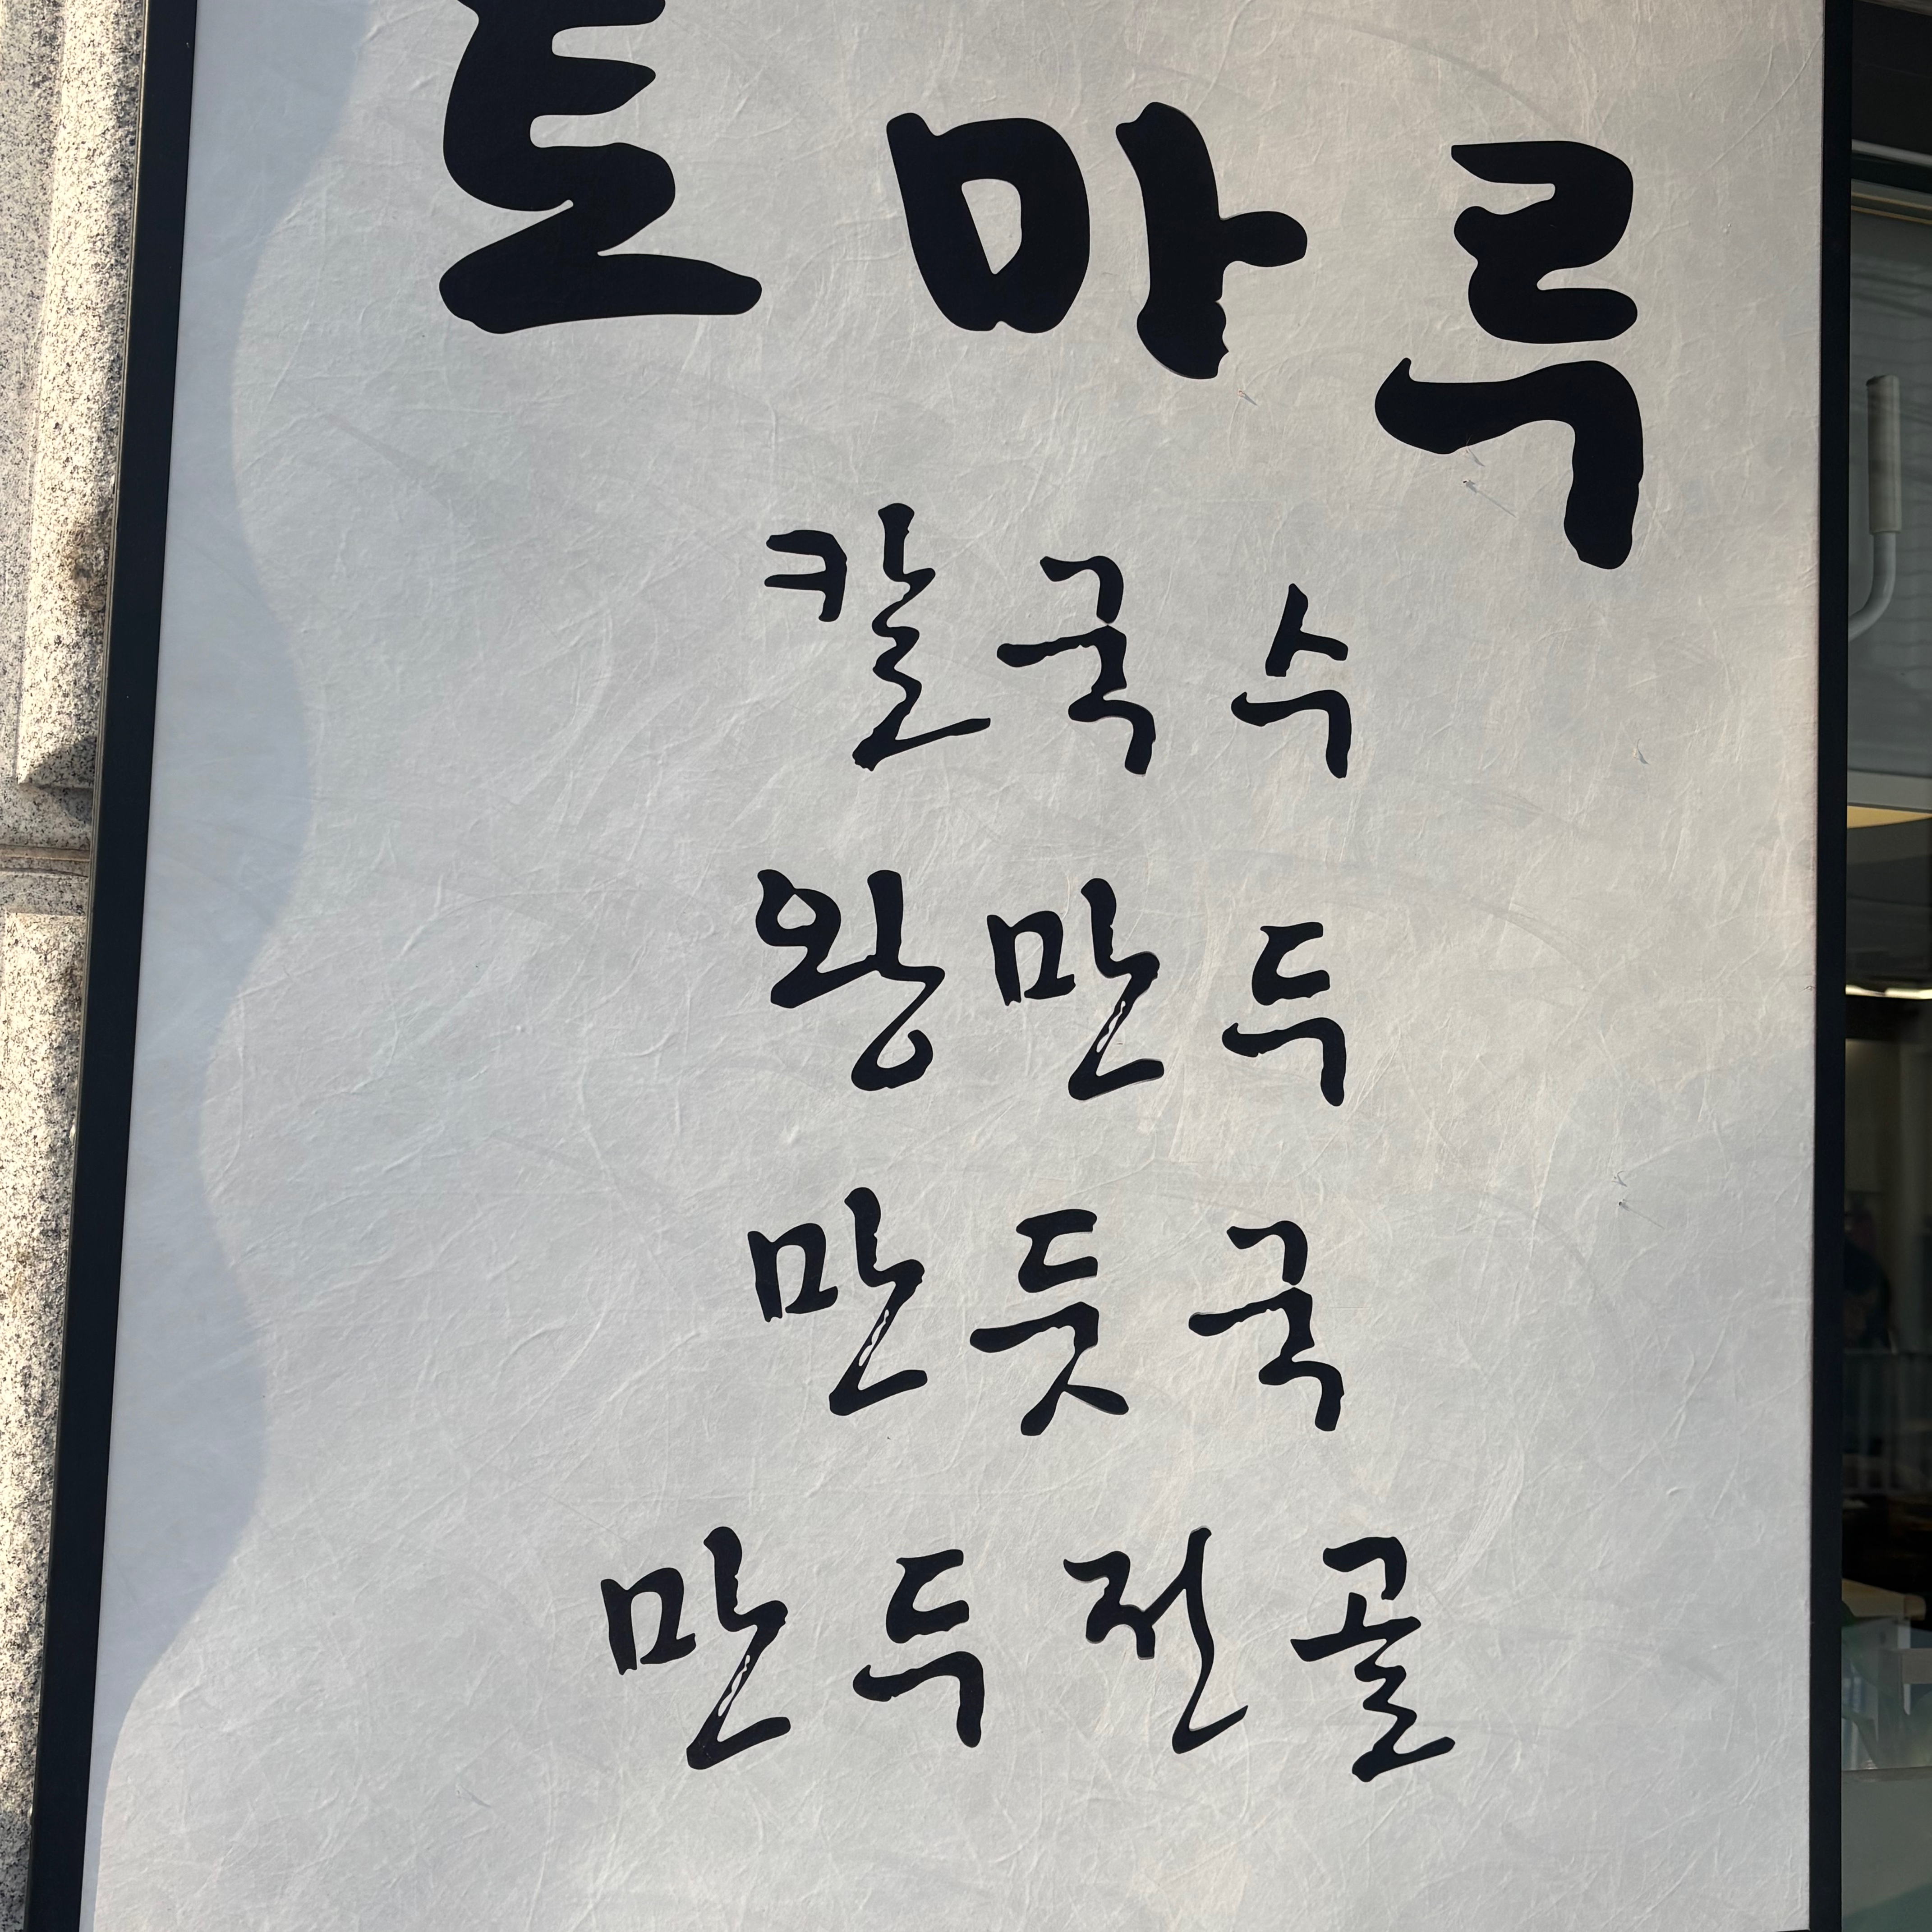 토마루
칼국수
왕만두
만듯국
만두전골